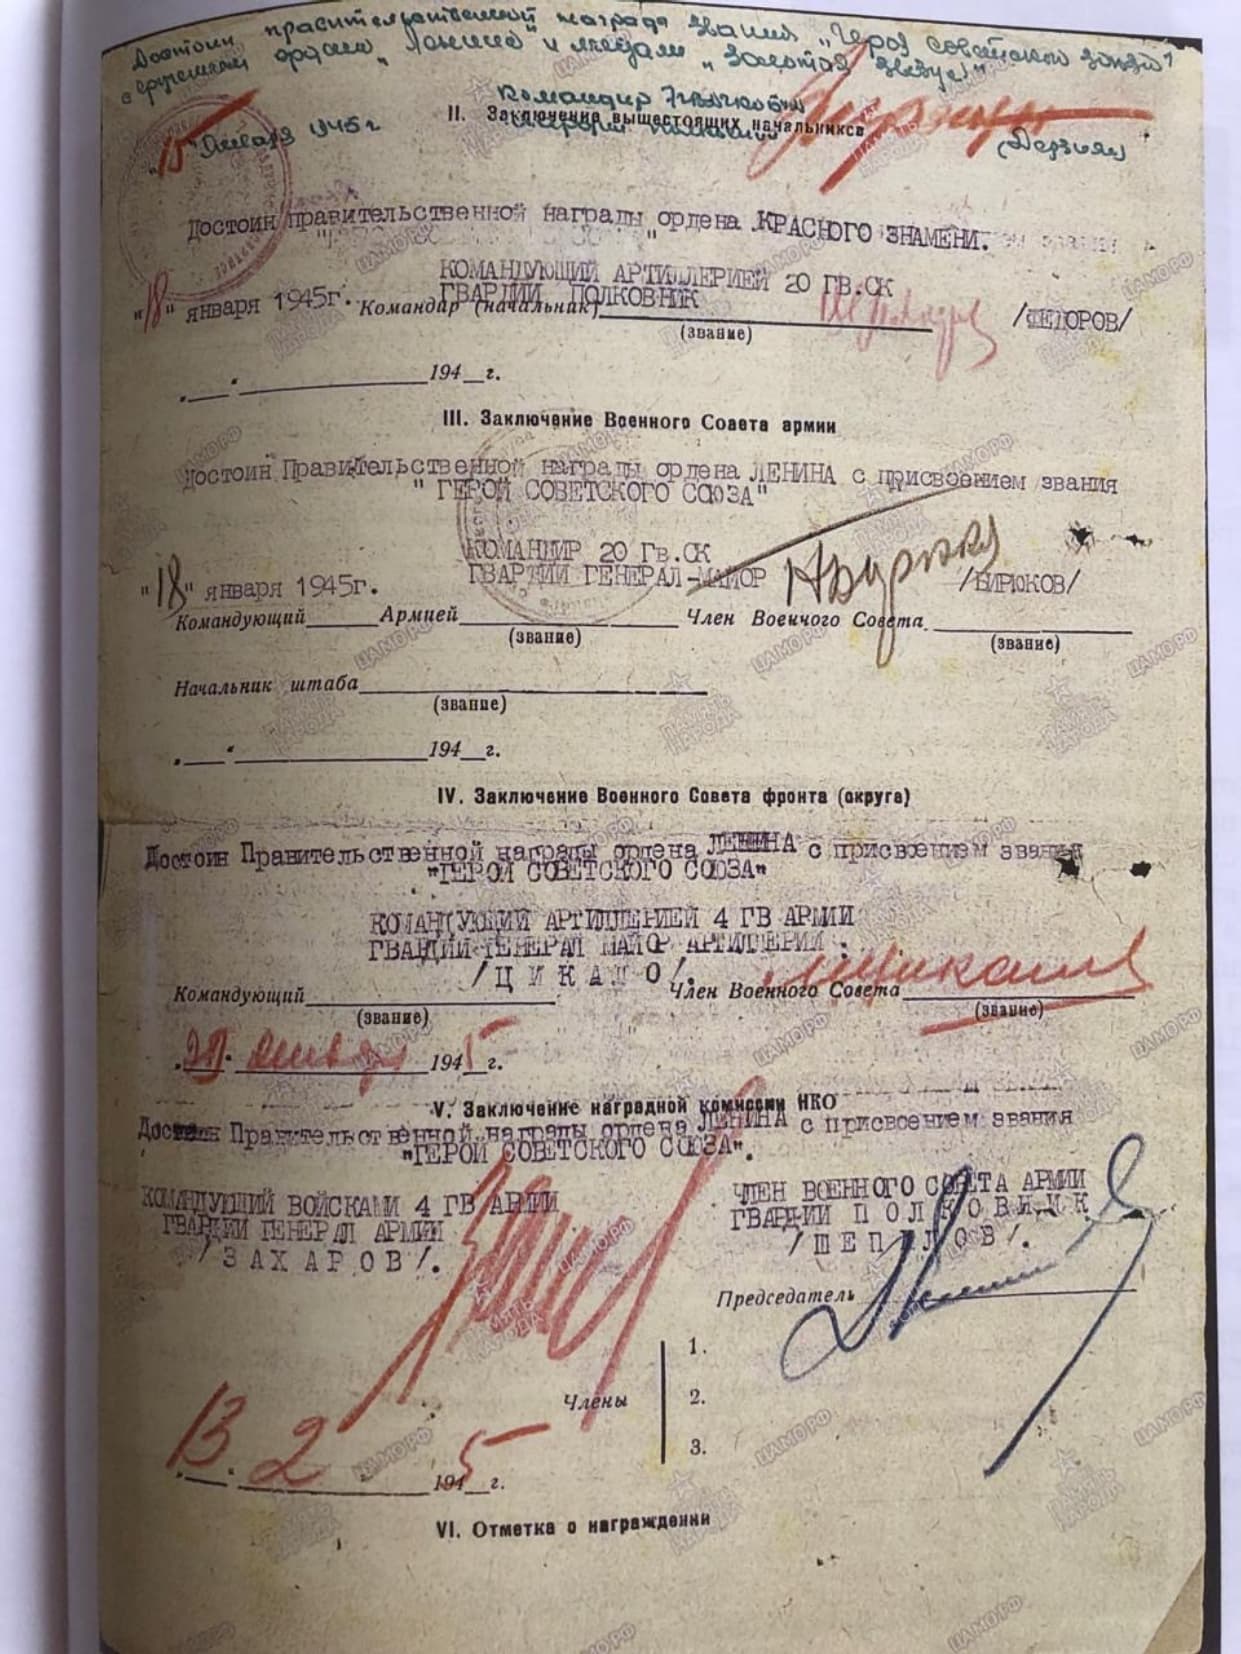 Достоин правительственной награды звания „Герой советского союза"
с вручением ордена „Ленина" и медали „Золотая звезда"
Командир
II. Заключение вышестоящих начальников
"15" Января 1945 г
(Дерзиян)
Достоин правительственной награды ордена КРАСНОГО ЗНАМЕНИ.
КОМАНДУЮЩИЙ АРТИЛЛЕРИЕЙ 20 ГВ.СК
"18" января 1945г. Командир (начальник) ГВАРДИИ ПОЛКОВНИК /ФЕДОРОВ/
(звание)
„__“ ______ 194__г.
III. Заключение Военного Совета армии
Достоин Правительственной награды ордена ЛЕНИНА с присвоением звания
" ГЕРОЙ СОВЕТСКОГО СОЮЗА"
КОМАНДИР 20 Гв.СК
"18" января 1945г. ГВАРДИИ ГЕНЕРАЛ-МАЙОР /БИРЮКОВ/
Командующий______Армией______ Член Военного Совета______
(звание) (звание)
Начальник штаба______
(звание)
„__“ ______ 194__г.
IV. Заключение Военного Совета фронта (округа)
Достоин Правительственной награды ордена ЛЕНИНА с присвоением звания
"ГЕРОЙ СОВЕТСКОГО СОЮЗА"
КОМАНДУЮЩИЙ АРТИЛЛЕРИЕЙ 4 ГВ АРМИИ
ГВАРДИИ ГЕНЕРАЛ МАЙОР АРТИЛЛЕРИИ .
/ Ц И К А Л О /.
Командующий______ Член Военного Совета______
(звание) (звание)
января 1945 г.
V. Заключение наградной комиссии НКО
Достоин Правительственной награды ордена ЛЕНИНА с присвоением звания
"ГЕРОЙ СОВЕТСКОГО СОЮЗА".
КОМАНДУЮЩИЙ ВОЙСКАМИ 4 ГВ АРМИИ
ГВАРДИИ ГЕНЕРАЛ АРМИИ
/ З А Х А Р О В /.
ЧЛЕН ВОЕННОГО СОВЕТА АРМИИ
ГВАРДИИ П О Л К О В Н И К
/ Ш Е П И Л О В /.
Председатель______
Члены
1.
2.
3.
13 2 1945 г.
VI. Отметка о награждении
ЦАМО.РФ
ПАМЯТЬ НАРОДА